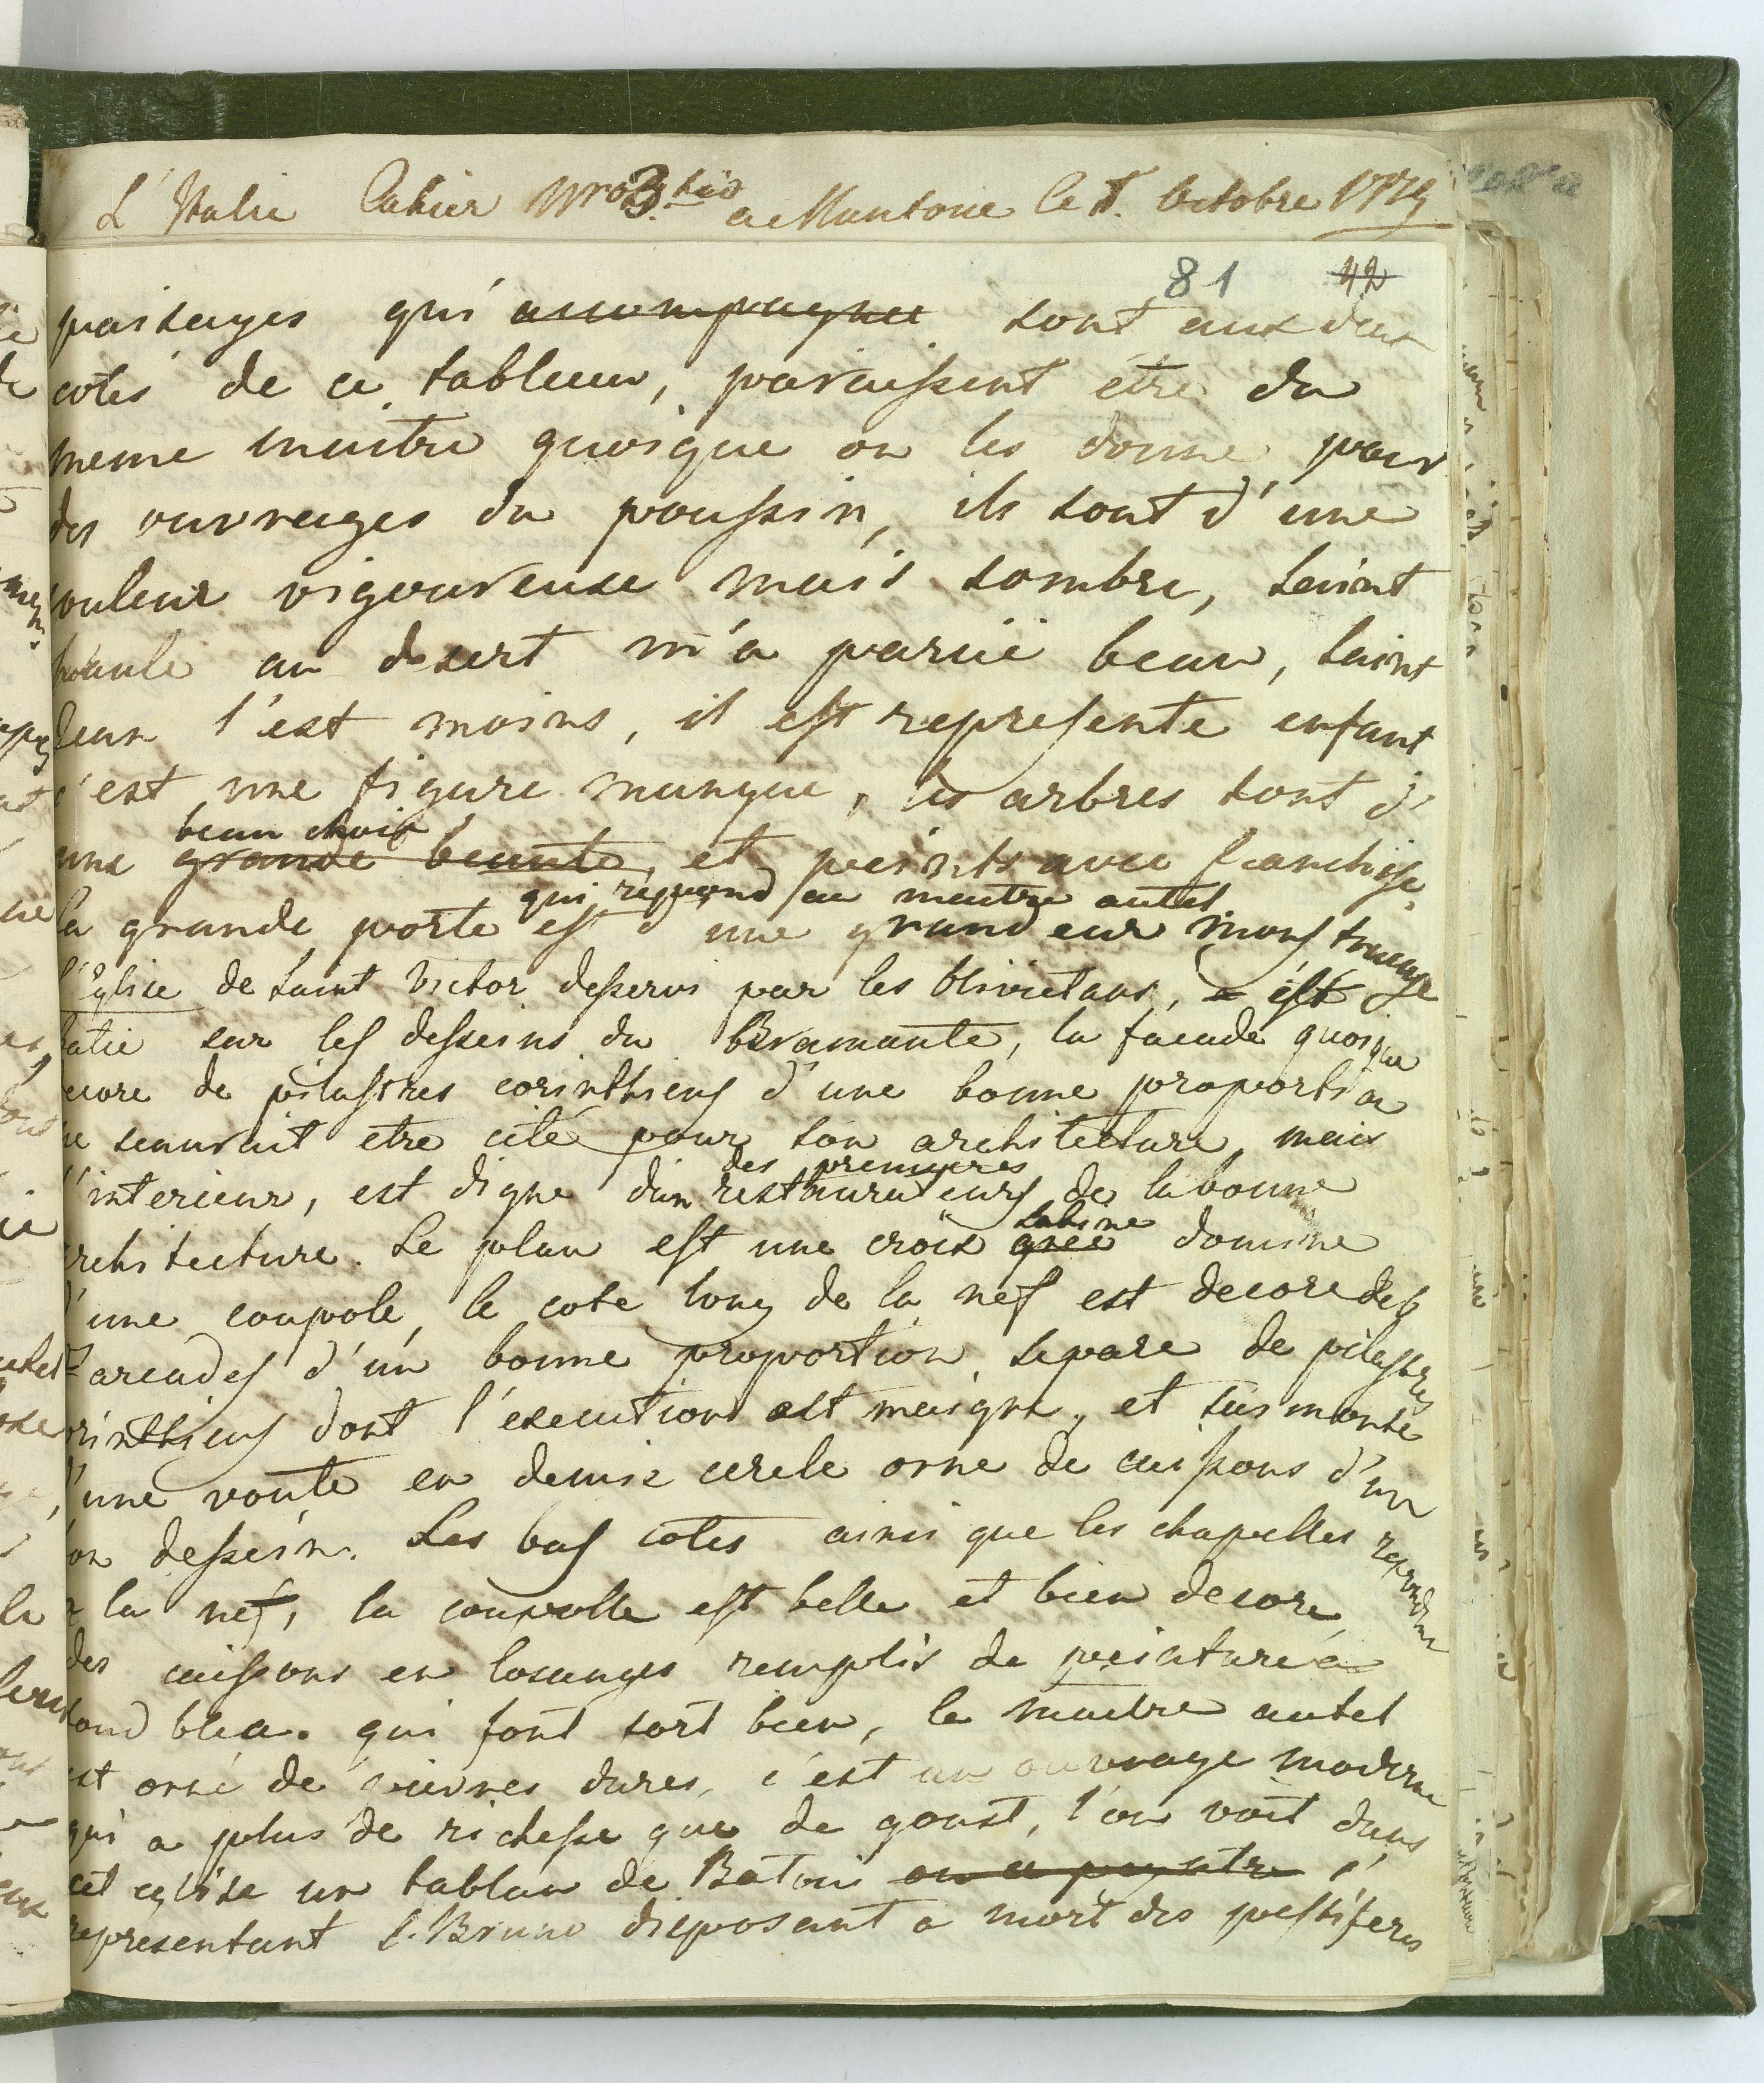 L'Italie Cahier Nro 3. bis a Mantoue le Octobre
81 42
paisages qui accompagnee sont aux deux
cotés de ce tableau, paraissent être du
meme maitre quoique on les donne pour
des ouvrages du poussin, ils sont d'une
couleur vigoureuse mais sombre, saint
paule au desert m'a parue beau, saint
Jean l'est moins, il est represente enfant
c'est une figure manque, les arbres sont d'
beau choix
une grande beaute, et peints avec franchise,
qui repond au maitre autel
la grande porte est d'une grandeur monstrueuse
l'Eglise de saint Victor desservi par les Olivietans, est
batie sur les desseins du Bramante, la facade quoique
decore de pilastres corinthiens d'une bonne proportion
ne scaurait etre cité pour son architecture, mais
des premieres
l'interieur, est digne d'un restaurateurs de la bonne
latine
architecture. Le plan est une croix grec domine
d'une coupole, le cote long de la nef est decore de
arcades d'un bonne proportion separe de pilastres
corinthiens dont l'execution est maigre, et surmonte
d'une voute en demie cercle orne de caissons d'un
bon dessein. Les bas cotes ainsi que les chapelles repondent
a la nef, la coupolle est belle et bien decore,
des caissons en losanges remplis de peinture a
fond bleu. qui font fort bien, le maitre autel
est orné de pierres dures, c'est un ouvrage moderne
qui a plus de richesse que de goust, l'on voit dans
cet eglise un tablau de Batoni
representant s. Bruno disposant a mort des pestiferes